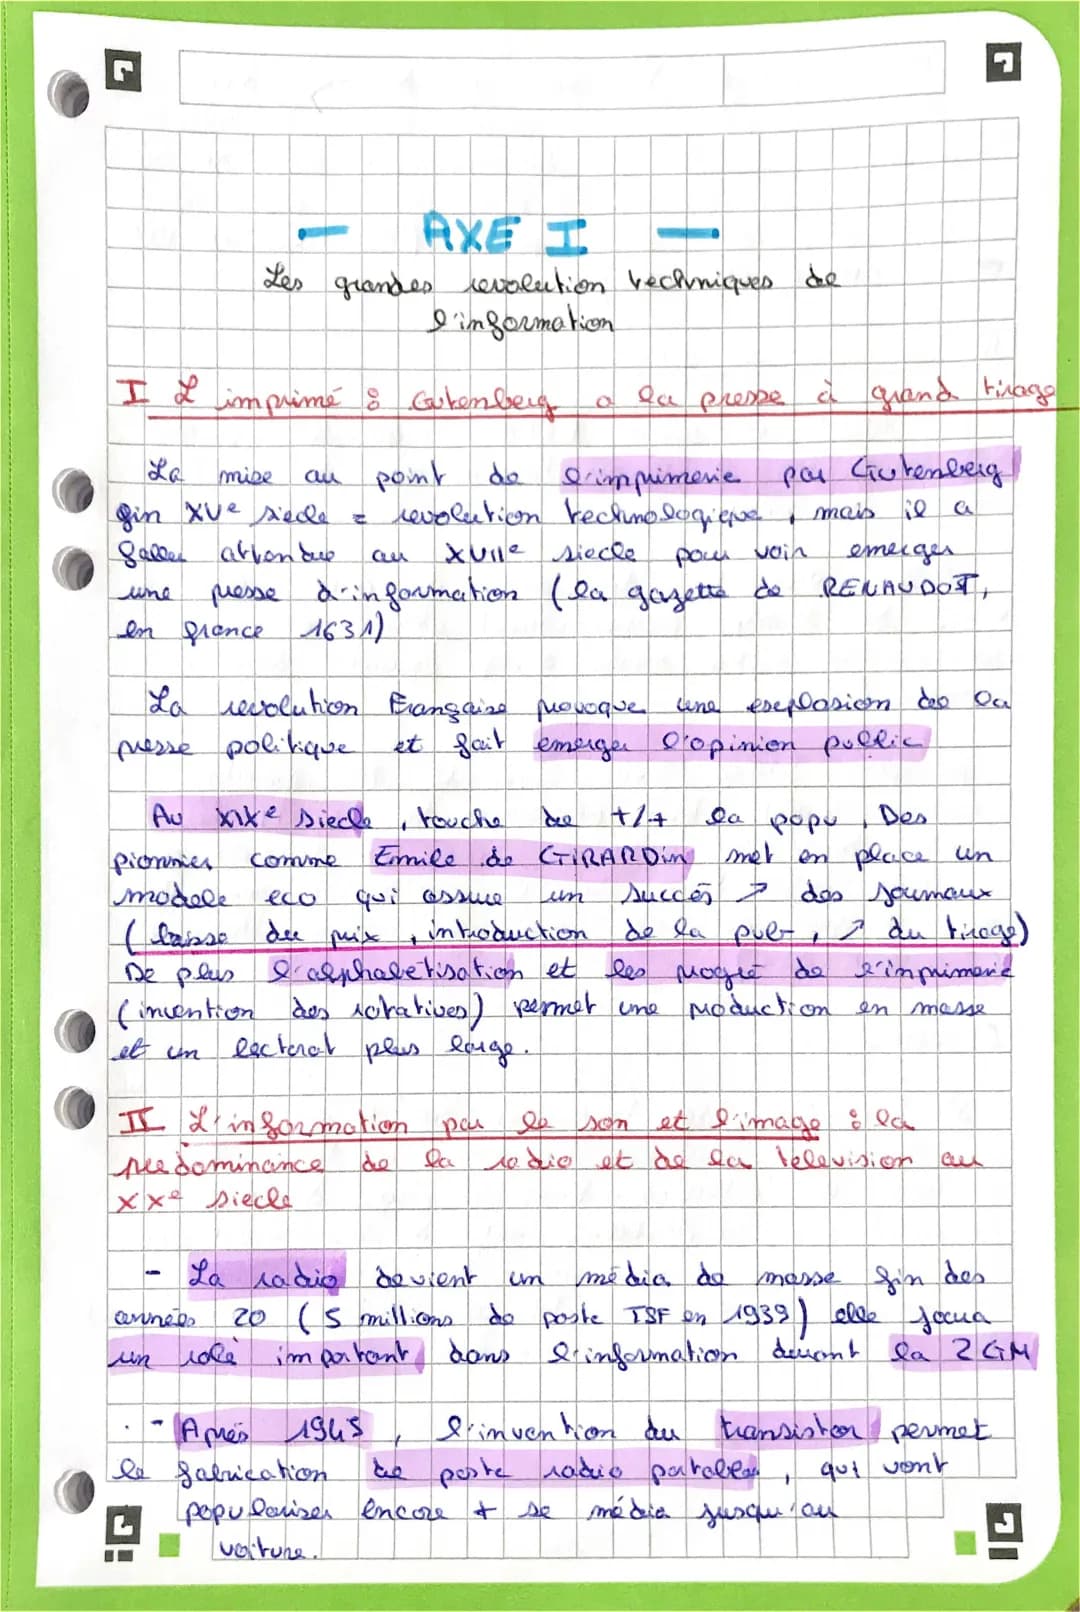 — AXE I —
Les grandes revolution techniques de
l'information
I L'imprimé : Gutenberg a la presse à grand tirage
La mise au point de l'imprimerie par Gutenberg
fin XVe siecle = revolution technologique, mais il a
fallu attendre au XVIIe siecle pour voir emerger
une presse d'information (la gazette de RENAUDOT,
en france 1631)
La revolution Française provoque une explosion de la
presse politique et fait emerger l'opinion public
Au XIXe siecle, touche de +/+ la popu. Des
pionnier comme Emile de GIRARDin met en place un
modele eco qui assure un succés ↗ des journaux
(baisse du prix, introduction de la pub, ↗ du tirage)
De plus l'alphabetisation et les progré de l'imprimerie
(invention des rotatives) permet une production en masse
et un lectorat plus large.
II L'information par le son et l'image : la
predominance de la radio et de la television au
XXe siecle
- La radio devient un média de masse fin des
années 20 (5 millions de poste TSF en 1939) elle joura
un role important dans l'information durant la 2GM
- Aprés 1945, l'invention du transistor permet
la fabrication de poste radio portables, qui vont
populariser encore + se média jusqu'au
voiture.